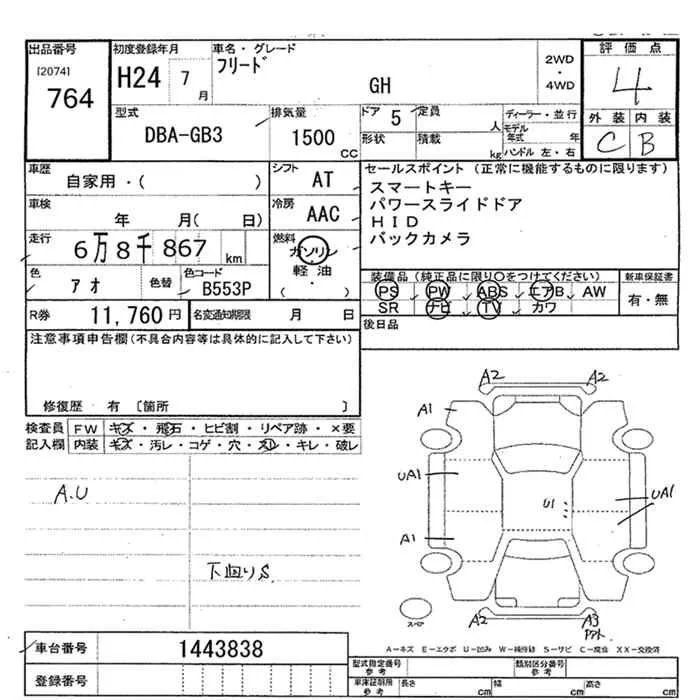 出品番号
[2074]
764
初度登録年月
H24 7 月
車名・グレード
フリード
GH
2WD
・
4WD
評価点
4
外装 内装
C B
型式
DBA-GB3
排気量
1500 CC
ドア 5
定員 人
形状
積載 kg
ディーラー・並行
モデル年式 年
ハンドル 左・右
車歴
自家用・( )
シフト AT
車検
年 月( 日)
冷房 AAC
走行
6万8千867 km
燃料
ガソリン
軽油
( ・ )
色 アオ 色替
色コード B553P
R券 11,760円
名変通知期限 月 日
セールスポイント(正常に機能するものに限ります)
スマートキー
パワースライドドア
HID
バックカメラ
装備品(純正品に限り○をつけてください)
PS PW ABS エアB AW
SR ナビ TV カワ
新車保証書
有・無
後日品
注意事項申告欄(不具合内容等は具体的に記入して下さい)
修復歴 有 〔箇所 〕
検査員 FW キズ・飛石・ヒビ割・リペア跡・×要
記入欄 内装 キズ・汚レ・コゲ・穴・スレ・キレ・破レ
A.U
下回りS
A2 A2
A1
UA1
U1
UA1
A1
A2 A3
スペア
A−キズ E−エクボ U−凹み W−補修跡 S−サビ C−腐食 XX−交換済
車台番号 1443838
登録番号
型式指定番号 参考
類別区分番号 参考
車庫証明用 参考
長さ cm
幅 cm
高さ cm